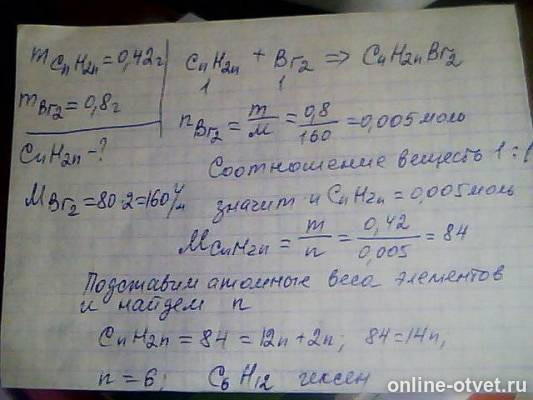 m CnH2n = 0,42г
m Br2 = 0,8г
CnH2n - ?
M Br2 = 80·2 = 160 г/м
CnH2n + Br2 ⇒ CnH2nBr2
1 1
n Br2 = m/M = 0,8/160 = 0,005 моль
Соотношение веществ 1:1
значит и CnH2n = 0,005 моль
M CnH2n = m/n = 0,42/0,005 = 84
Подставим атомные веса элементов
и найдем n
CnH2n = 84 = 12n + 2n; 84 = 14n,
n = 6; C6H12 гексен
online-otvet.ru